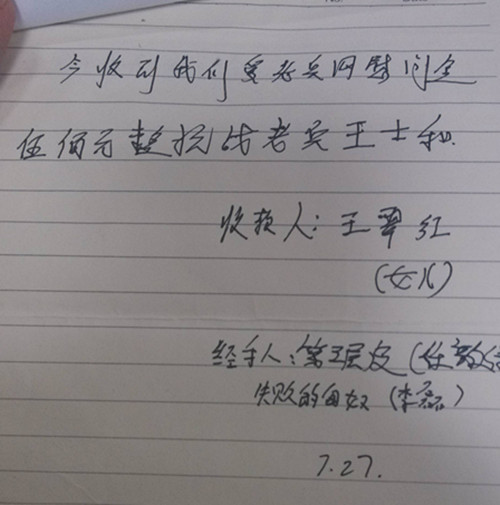 今收到我们爱老兵网慰问金
伍佰元整抗战老兵王士和.
收款人：王翠红
（女儿）
经手人：第五层皮（任毅
失败的母奴（李磊）
7.27.